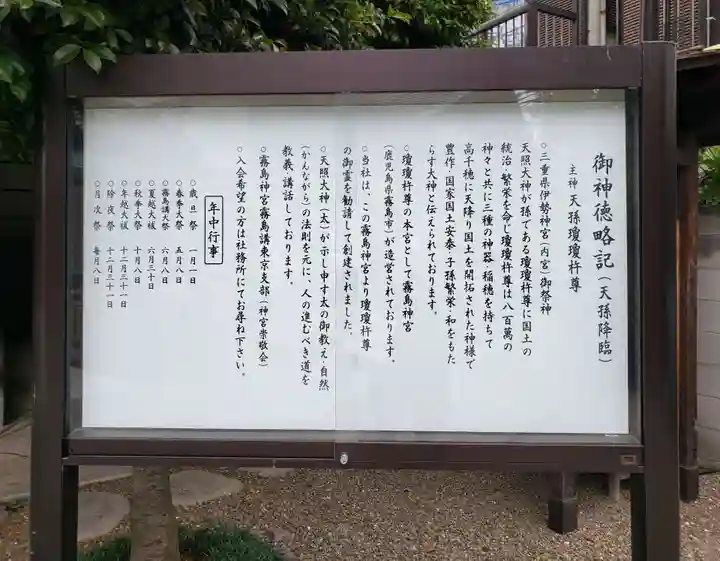 御神徳略記(天孫降臨)
主神 天孫瓊瓊杵尊
○三重県伊勢神宮(内宮)御祭神
天照大神が孫である瓊瓊杵尊に国土の
統治・繁栄を命じ瓊瓊杵尊は八百萬の
神々と共に三種の神器・稲穂を持ちて
高千穂に天降り国土を開拓された神様で
豊作・国家国土安泰・子孫繁栄・和をもた
らす大神と伝えられております。
○瓊瓊杵尊の本宮として霧島神宮
(鹿児島県霧島市)が造営されております。
○当社は、この霧島神宮より瓊瓊杵尊
の御霊を勧請して創建されました。
○天照大神(太)が示し申す太の御教え・自然
(かんながら)の法則を元に、人の進むべき道を
教義・講話しております。
○霧島神宮霧島講東京支部(神宮崇敬会)
○入会希望の方は社務所にてお尋ね下さい。
年中行事
○歳旦祭 一月一日
○春季大祭 五月八日
○霧島講大祭 六月八日
○夏越大祓 六月三十日
○秋季大祭 十月八日
○年越大祓 十二月三十一日
○除夜祭 十二月三十一日
○月次祭 毎月八日